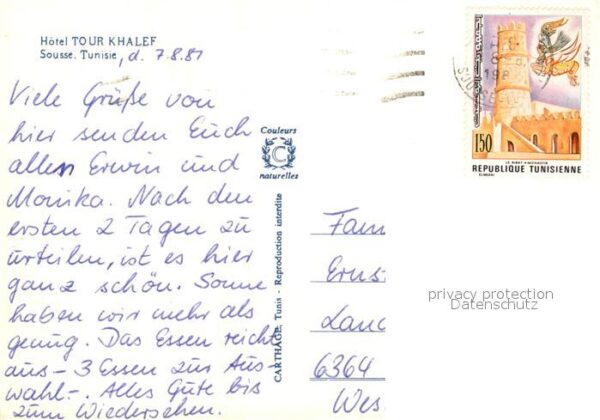 Hôtel TOUR KHALEF
Sousse. Tunisie, d. 7.8.81
Viele Grüße von
hier senden Euch
allen Erwin und
Monika. Nach den
ersten 2 Tagen zu
urteilen, ist es hier
ganz schön. Sonne
haben wir mehr als
genung. Das Essen reicht
aus - 3 Essen zur Aus-
wahl -. Alles Gute bis
zum Wiedersehen.
Couleurs
C
naturelles
CARTHAGE, Tunis - Reproduction interdite
150
LE RIBAT
REPUBLIQUE TUNISIENNE
Fam
Erns
Land
6364
Wes
privacy protection
Datenschutz